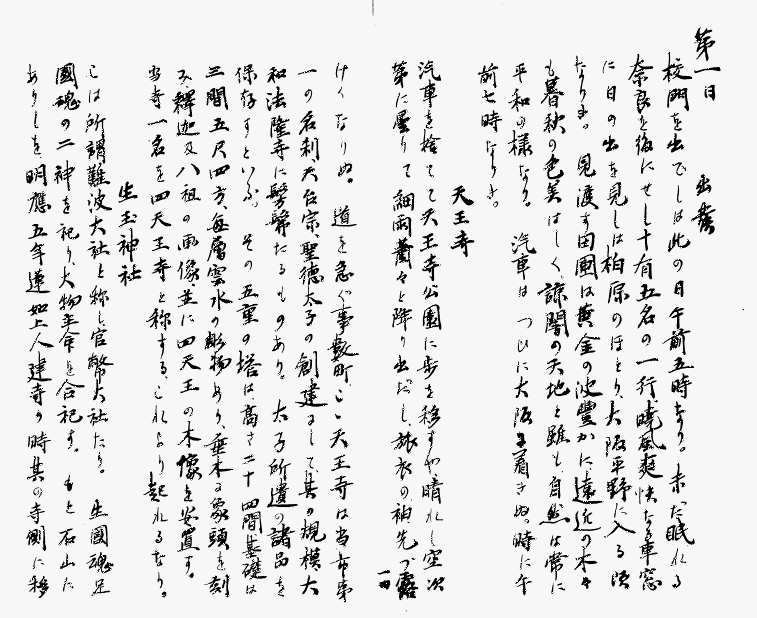 第一日　　出発
校門を出でしは此の日午前五時なり。未だ眠れる
奈良を後にせし十有五名の一行、暁風爽快なる車窓
に日の出を見しは柏原のほとり、大阪平野に入る頃
なりき。見渡す田圃は黄金の波豊かに、遠近の木々
も暮秋の色美はしく、諒闇の天地と雖も、自然は常に
平和の様なり。汽車は つひに大阪に着きぬ。時に午
前七時なりき。
天王寺
汽車を捨てて天王寺公園に歩を移すや、晴れし空次
第に曇りて細雨蕭々と降り出だし、旅衣の袖、先づ露
一四
けくなりぬ。道を急ぐ事数町、こゝ天王寺は当市第
一の名刹、天台宗、聖徳太子の創建にして、其の規模、大
和法隆寺に髣髴たるものあり。太子所遺の諸品を
保存すといふ。その五重の塔は、高さ二十四間、基礎は
三間五尺四方、毎層雲水の彫物あり、垂木に象頭を刻
み、釋迦及八祖の画像、並に四天王の木像を安置す。
当寺一名を四天王寺と称する、これより起れるなり。
生玉神社
こは所謂難波大社と称し官幣大社たり。生國魂足
國魂の二神を祀り、大物主命を合祀す。もと石山に
ありしを明應五年蓮如上人建寺の時其の寺側に移